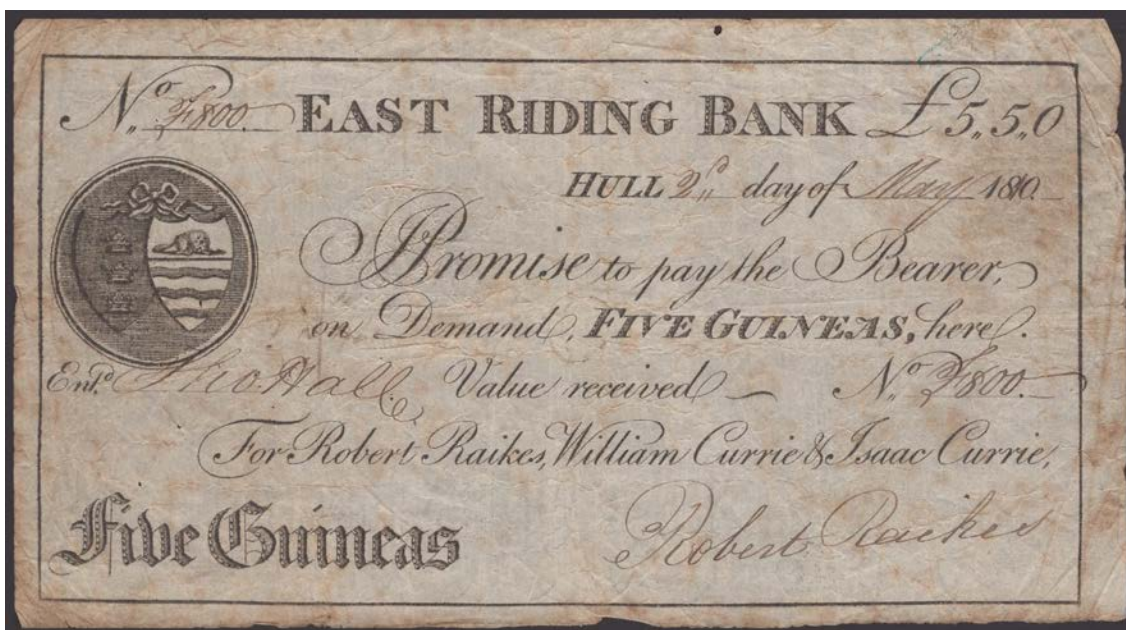 No. F800 EAST RIDING BANK £5,,5,,0
HULL 2d,, day of May 1810
I Promise to pay the Bearer,
on Demand, FIVE GUINEAS, here.
Entd. Tho Hall Value received — No. F800
For Robert Raikes, William Currie & Isaac Currie,
Five Guineas Robert Raikes